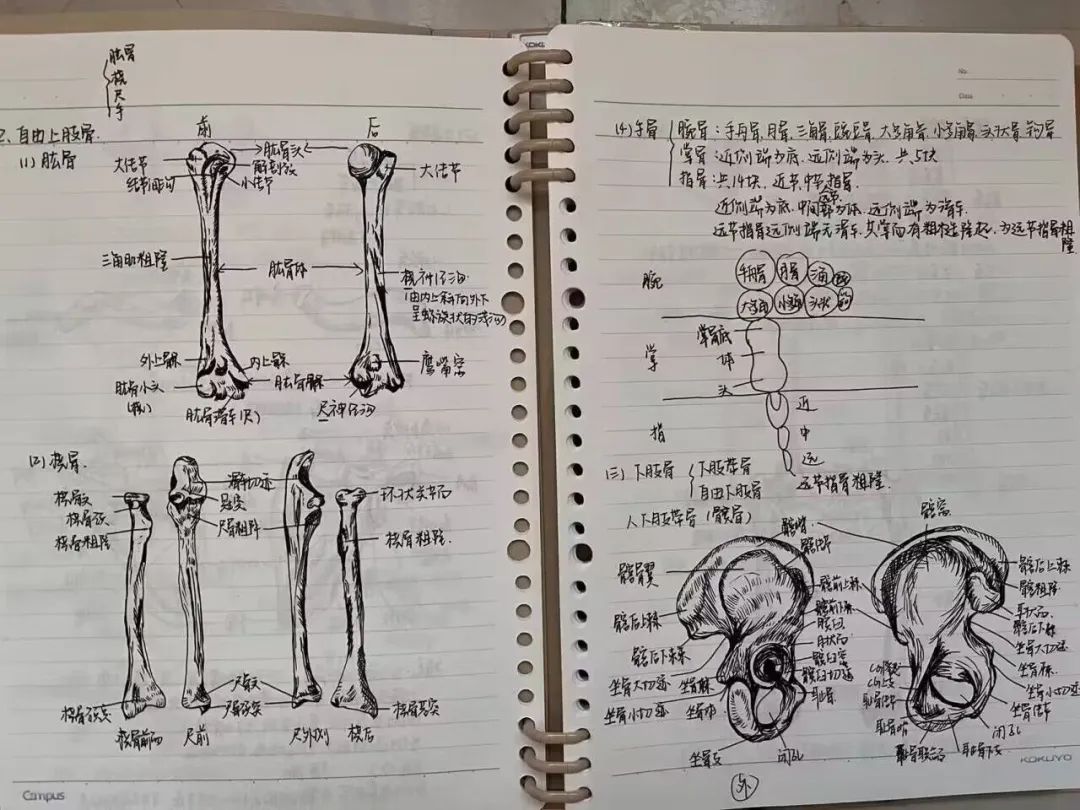 肱骨
桡
尺
手
2、自由上肢骨
(1) 肱骨
前
后
大结节
结节间沟
肱骨头
解剖颈
小结节
大结节
三角肌粗隆
肱骨体
桡神经沟
(由内上斜向外下
呈螺旋状的浅沟)
外上髁
内上髁
鹰嘴窝
肱骨小头
(桡)
肱骨滑车(尺)
肱骨髁
尺神经沟
(2) 桡骨
桡骨头
桡骨颈
桡骨粗隆
滑车切迹
冠突
尺骨粗隆
环状关节面
桡骨粗隆
尺骨头
尺骨茎突
桡骨茎突
桡骨茎突
桡骨前面
尺前
尺外侧
桡后
Campus
No.
Class
(4) 手骨
腕骨：手舟骨、月骨、三角骨、豌豆骨、大多角骨、小多角骨、头状骨、钩骨
掌骨：近侧端为底、远侧端为头、共5块
指骨：共14块、近节、中节、远节指骨.
近侧端为底、中间部为体、远侧端为滑车
远节指骨远侧端无滑车、其掌面有粗糙隆起、为远节指骨粗隆
腕
手舟骨
月骨
三角
大多角
小多角
头状
掌
掌骨底
体
头
指
近
中
远
远节指骨粗隆.
(三) 下肢骨
下肢带骨
自由下肢骨
1、下肢带骨 (髋骨)
髂嵴
髂窝
髂骨翼
髂后上棘
髂后下棘
坐骨大切迹
坐骨棘
坐骨小切迹
坐骨体
坐骨支
闭孔
髂前上棘
髂前下棘
髋臼
月状面
髋臼窝
髋臼切迹
耻骨
外
髂后上棘
髂粗隆
耳状面
髂后下棘
坐骨大切迹
坐骨棘
坐骨小切迹
坐骨结节
闭孔
耻骨下支
耻骨联合面
耻骨上支
KOKUYO